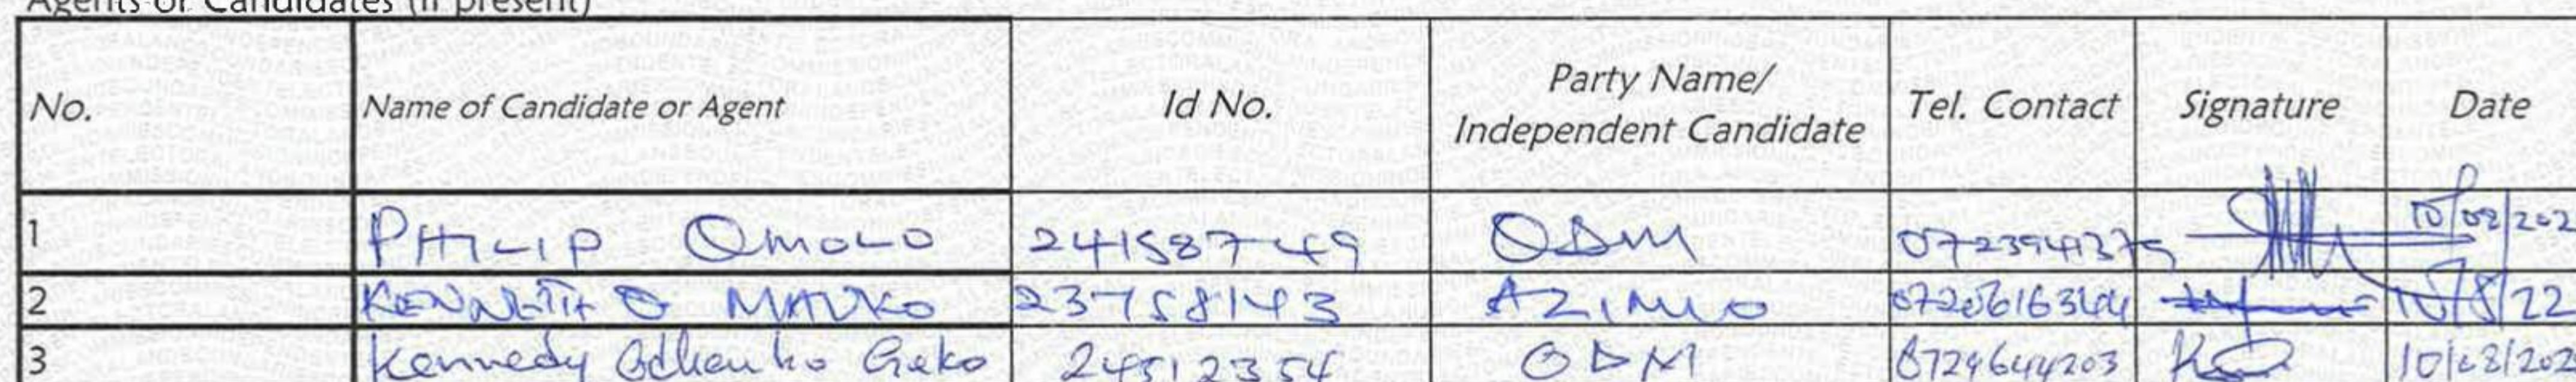 Agents or Candidates (if present)
No. Name of Candidate or Agent Id No. Party Name/ Independent Candidate Tel. Contact Signature Date
1 PHILIP OMOLO 24158749 ODM 0723941379 10/08/202
2 KENNETH O 23758143 AZIMIO 10/8/22
3 Kennedy 24512354 ODM 0729644203 10/08/202